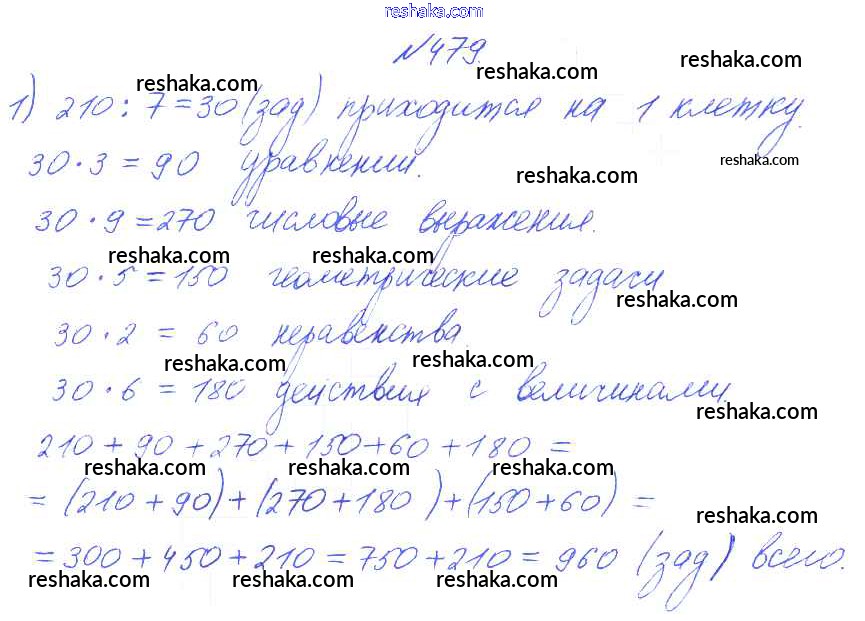 reshaka.com
№479.
reshaka.com
reshaka.com reshaka.com
1) 210 : 7 = 30 (зад) приходится на 1 клетку.
30 · 3 = 90 уравнении.
reshaka.com reshaka.com
30 · 9 = 270 числовые выражения.
reshaka.com reshaka.com
30 · 5 = 150 геометрические задачи
reshaka.com
30 · 2 = 60 неравенства.
reshaka.com reshaka.com
30 · 6 = 180 действия с величинами.
reshaka.com
210 + 90 + 270 + 150 + 60 + 180 =
reshaka.com reshaka.com reshaka.com
= (210 + 90) + (270 + 180) + (150 + 60) =
reshaka.com
= 300 + 450 + 210 = 750 + 210 = 960 (зад) всего.
reshaka.com reshaka.com reshaka.com